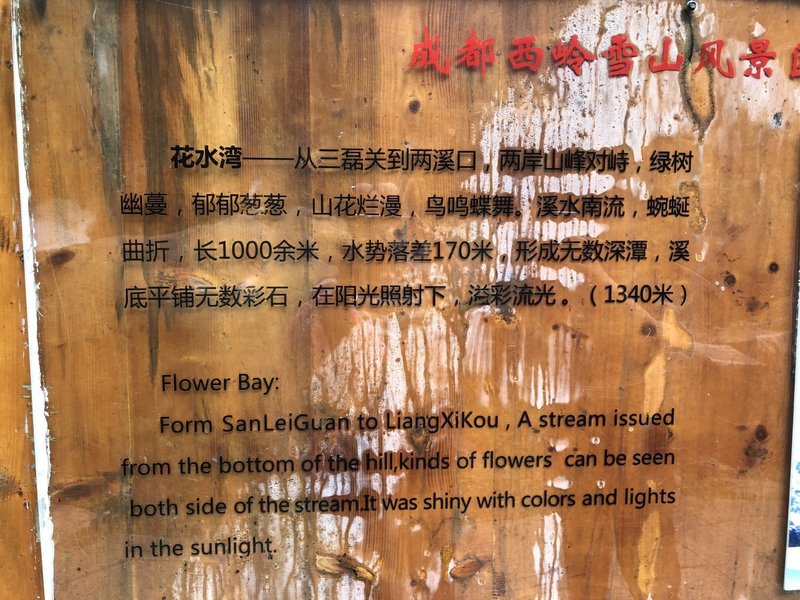 成都西岭雪山风景区
花水湾——从三磊关到两溪口，两岸山峰对峙，绿树
幽蔓，郁郁葱葱，山花烂漫，鸟鸣蝶舞。溪水南流，蜿蜒
曲折，长1000余米，水势落差170米，形成无数深潭，溪
底平铺无数彩石，在阳光照射下，溢彩流光。（1340米）
Flower Bay:
Form SanLeiGuan to LiangXiKou , A stream issued
from the bottom of the hill,kinds of flowers can be seen
both side of the stream.It was shiny with colors and lights
in the sunlight.